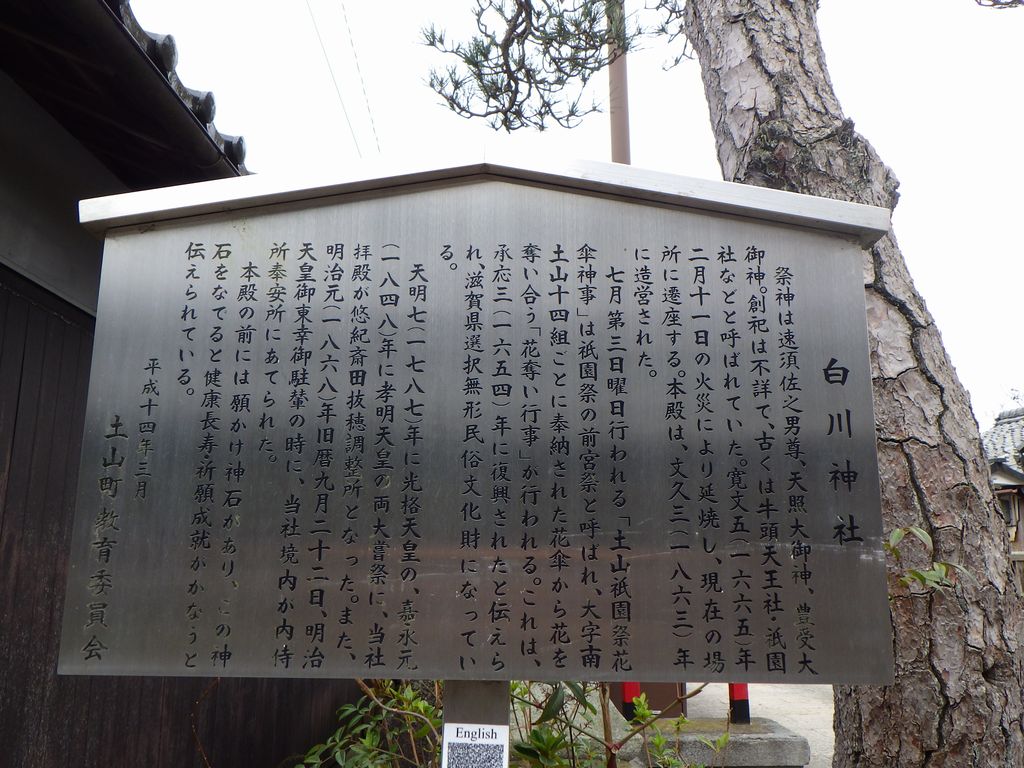 白川神社
祭神は速須佐之男尊、天照大御神、豊受大
御神。創祀は不詳で、古くは牛頭天王社・祇園
社などと呼ばれていた。寛文五(一六六五)年
二月十一日の火災により延焼し、現在の場
所に遷座する。本殿は、文久三(一八六三)年
に造営された。
七月第三日曜日行われる「土山祇園祭花
傘神事」は祇園祭の前宮祭と呼ばれ、大字南
土山十四組ごとに奉納された花傘から花を
奪い合う「花奪い行事」が行われる。これは、
承応三(一六五四)年に復興されたと伝えら
れ、滋賀県選択無形民俗文化財になってい
る。
天明七(一七八七)年に光格天皇の、嘉永元
(一八四八)年に孝明天皇の両大嘗祭に、当社
拝殿が悠紀斎田抜穂調整所となった。また、
明治元(一八六八)年旧暦九月二十二日、明治
天皇御東幸御駐輦の時に、当社境内が内侍
所奉安所にあてられた。
本殿の前には願かけ神石があり、この神
石をなでると健康長寿・祈願成就がかなうと
伝えられている。
平成十四年三月
土山町教育委員会
English